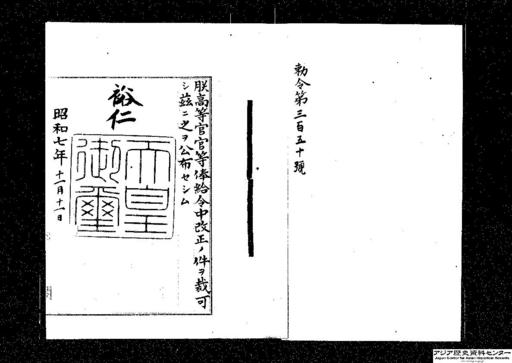 勅令第三百五十號
朕高等官官等俸給令中改正ノ件ヲ裁可
シ茲ニ之ヲ公布セシム
裕仁
天皇御璽
昭和七年十一月十一日
アジア歴史資料センター
Japan Center for Asian Historical Records